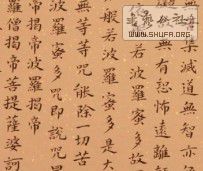 WWW.SHUFA.ORG
集滅道無智亦
無有恐怖遠離
波羅蜜多故
般若波羅蜜多是大
無等等咒能除一切苦
波羅蜜多咒即說咒曰
揭帝波羅揭帝
羅僧揭帝菩提薩婆訶